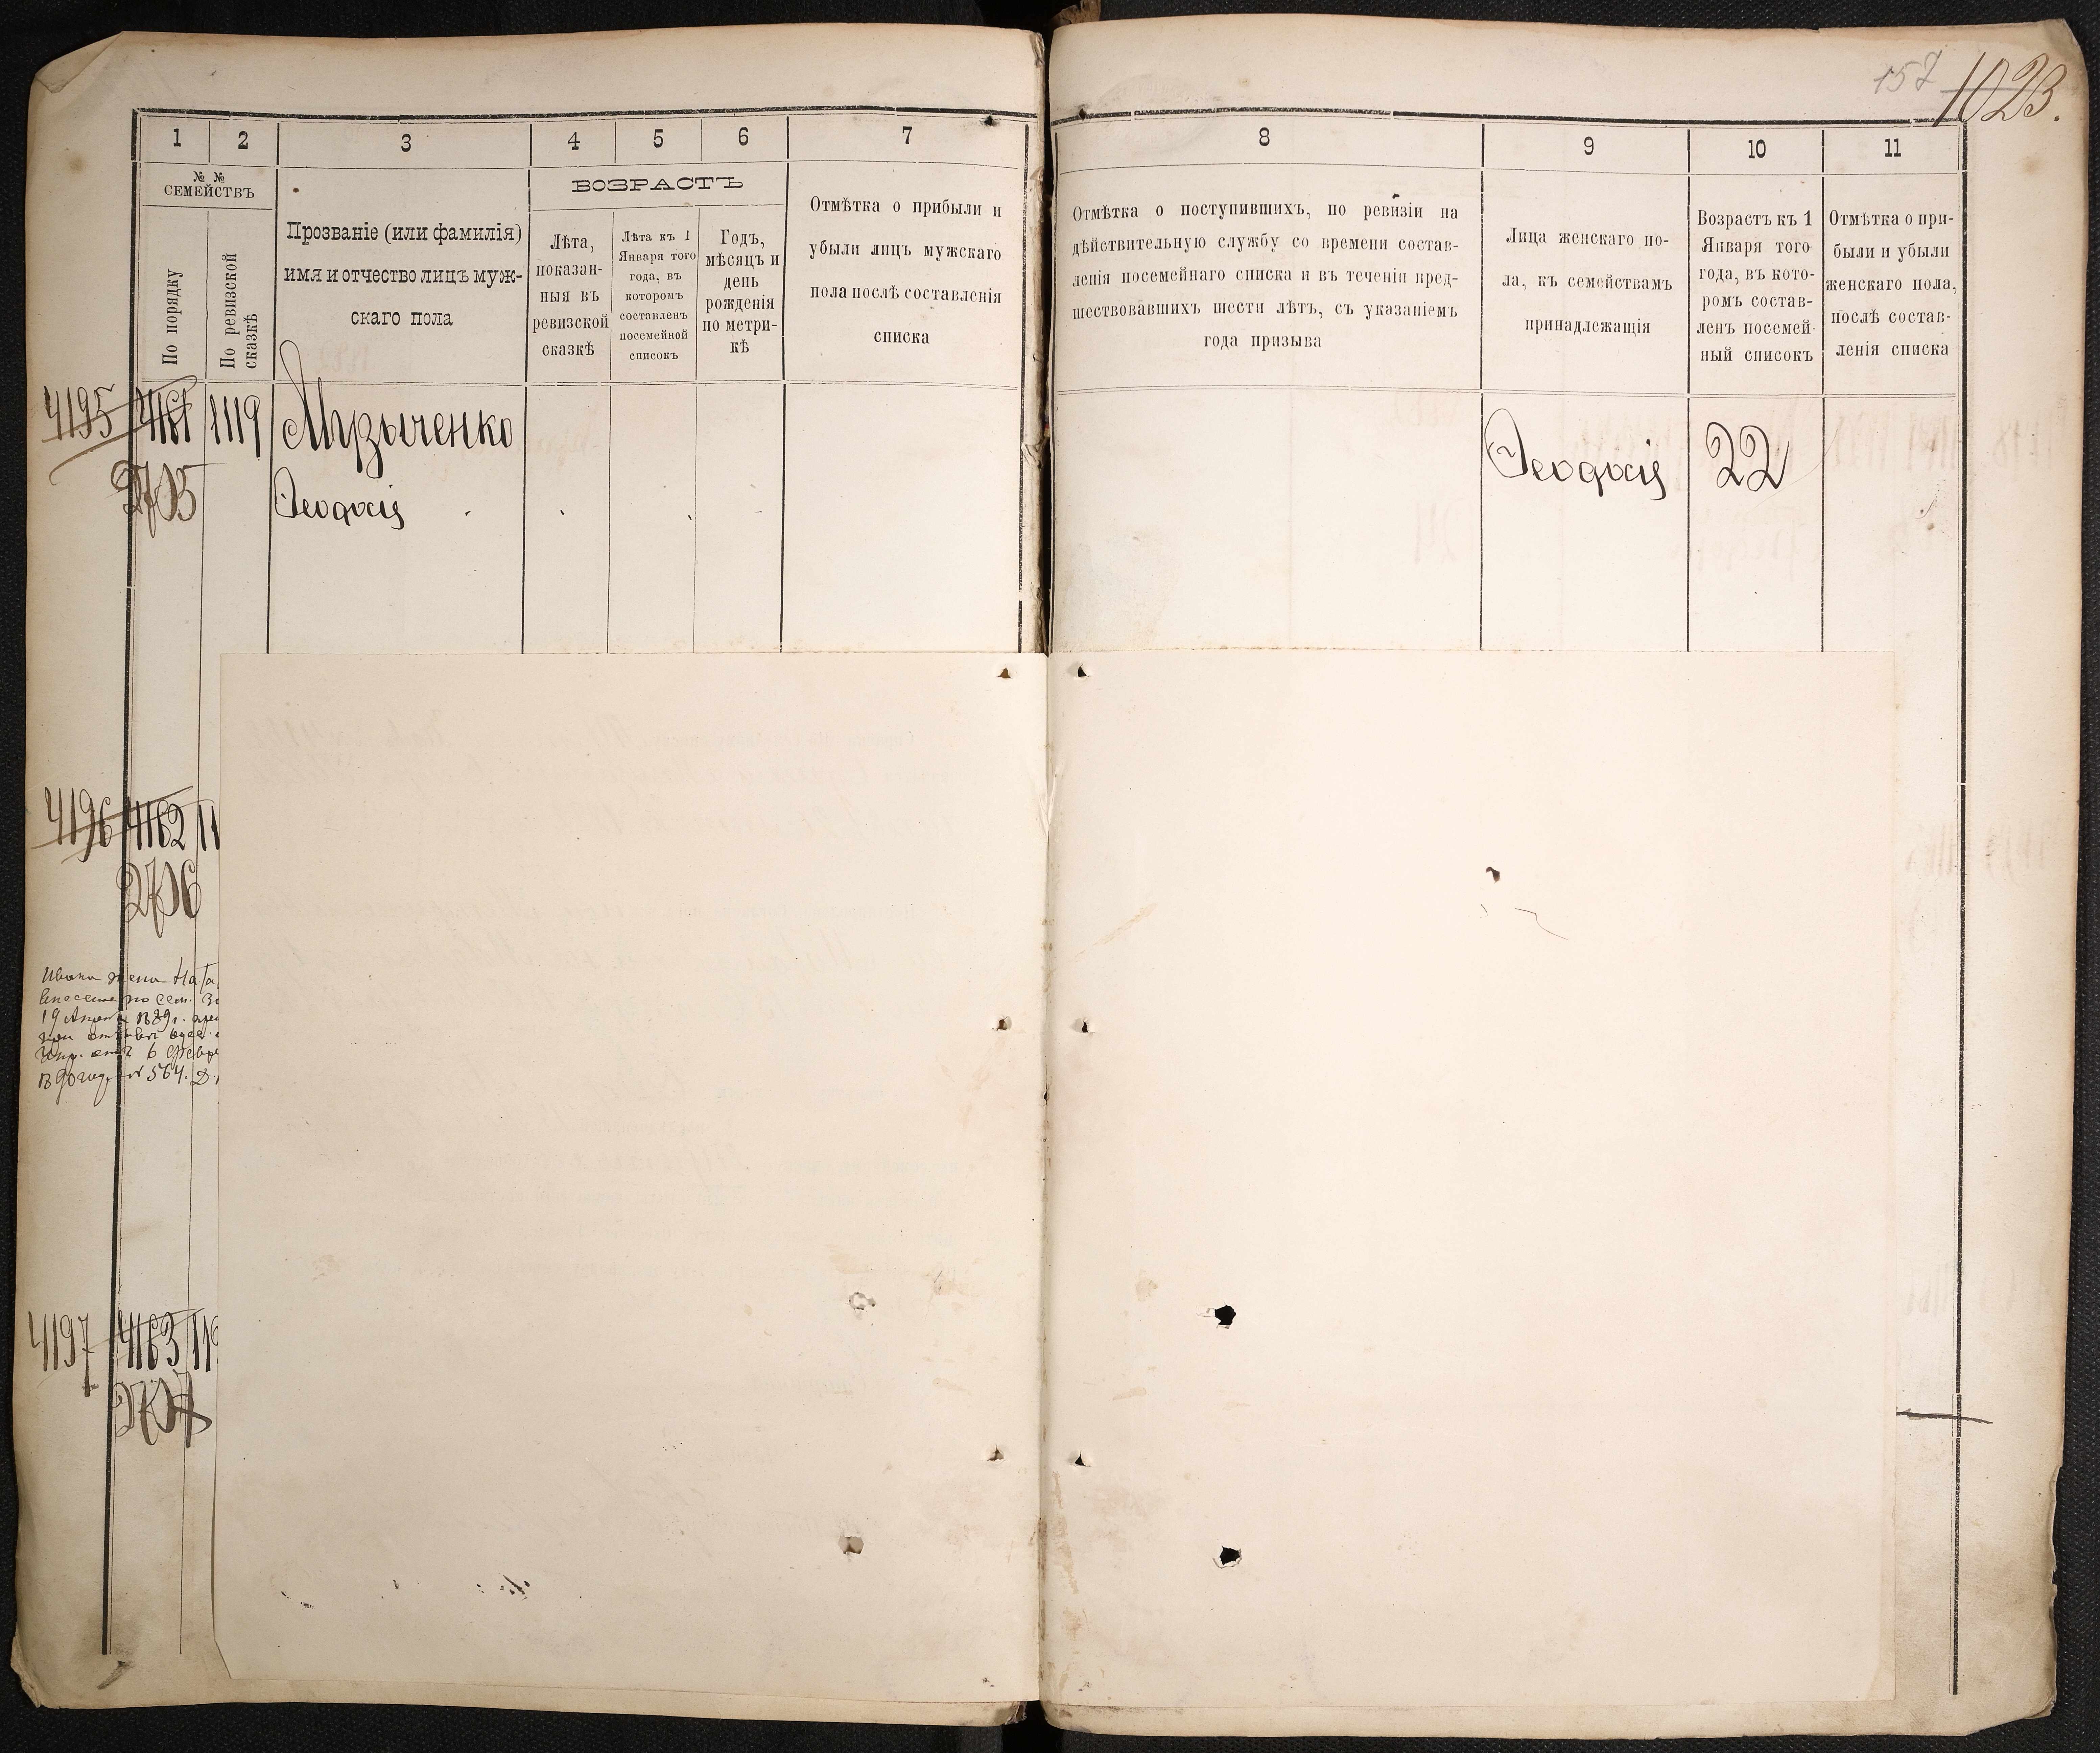 157 1023.
1 2 3 4 5 6 7
№ №
СЕМЕЙСТВЪ
По порядку
По ревизской
сказкѣ
Прозваніе (или фамилія)
имя и отчество лицъ муж-
скаго пола
ВОЗРАСТЪ
Лѣта,
показан-
ныя въ
ревизской
сказкѣ
Лѣта къ 1
Января того
года, въ
которомъ
составленъ
посемейной
списокъ
Годъ,
мѣсяцъ и
день
рожденія
по метри-
кѣ
Отмѣтка о прибыли и
убыли лицъ мужскаго
пола послѣ составленія
списка
8 9 10 11
Отмѣтка о поступившихъ, по ревизіи на
дѣйствительную службу со времени состав-
ленія посемейнаго списка и въ теченіи пред-
шествовавшихъ шести лѣтъ, съ указаніемъ
года призыва
Лица женскаго по-
ла, къ семействамъ
принадлежащія
Возрастъ къ 1
Января того
года, въ кото-
ромъ состав-
ленъ посемей-
ный списокъ
Отмѣтка о при-
были и убыли
женскаго пола,
послѣ состав-
ленія списка
4195 4161 1119 Музыченко
2705 Ѳеодосія
Ѳеодосія 22
4196 4162 11
2706
Ивана жена Ната
внесена по сем.
19 1889г.
6 Февр
1890 году № 564.
4197 4163 119
2707